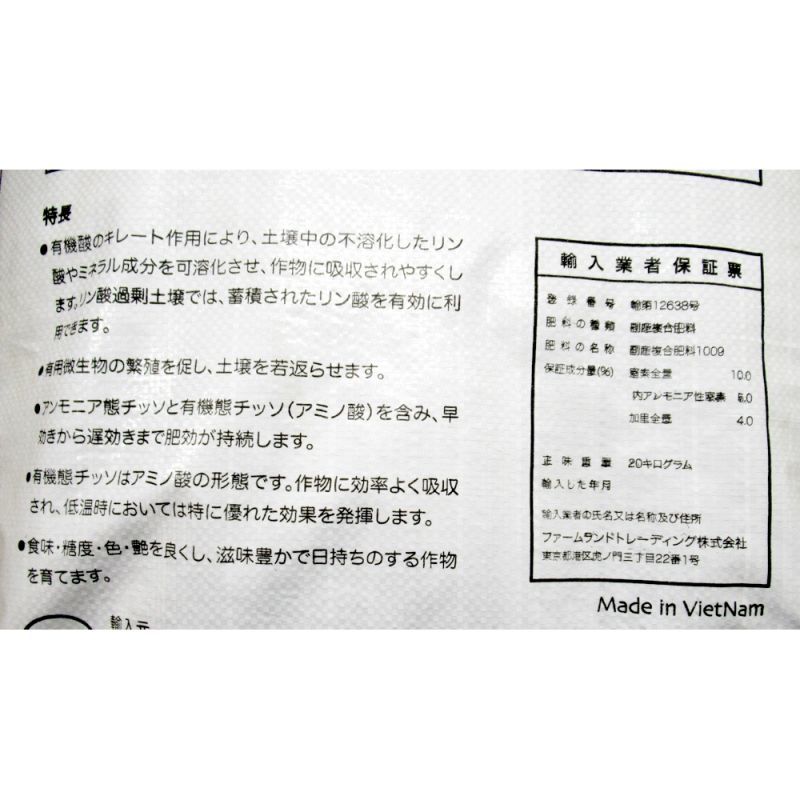 特長
●有機酸のキレート作用により、土壌中の不溶化したリン
酸やミネラル成分を可溶化させ、作物に吸収されやすくし
ます。リン酸過剰土壌では、蓄積されたリン酸を有効に利
用できます。
●有用微生物の繁殖を促し、土壌を若返らせます。
●アンモニア態チッソと有機態チッソ(アミノ酸)を含み、早
効きから遅効きまで肥効が持続します。
●有機態チッソはアミノ酸の形態です。作物に効率よく吸収
され、低温時においては特に優れた効果を発揮します。
●食味・糖度・色・艶を良くし、滋味豊かで日持ちのする作物
を育てます。
輸入元
輸入業者保証票
登録番号 輸第12638号
肥料の種類 副産複合肥料
肥料の名称 副産複合肥料1009
保証成分量(%) 窒素全量 10.0
内アンモニア性窒素 6.0
加里全量 4.0
正味重量 20キログラム
輸入した年月
輸入業者の氏名又は名称及び住所
ファームランドトレーディング株式会社
東京都港区虎ノ門三丁目22番1号
Made in VietNam